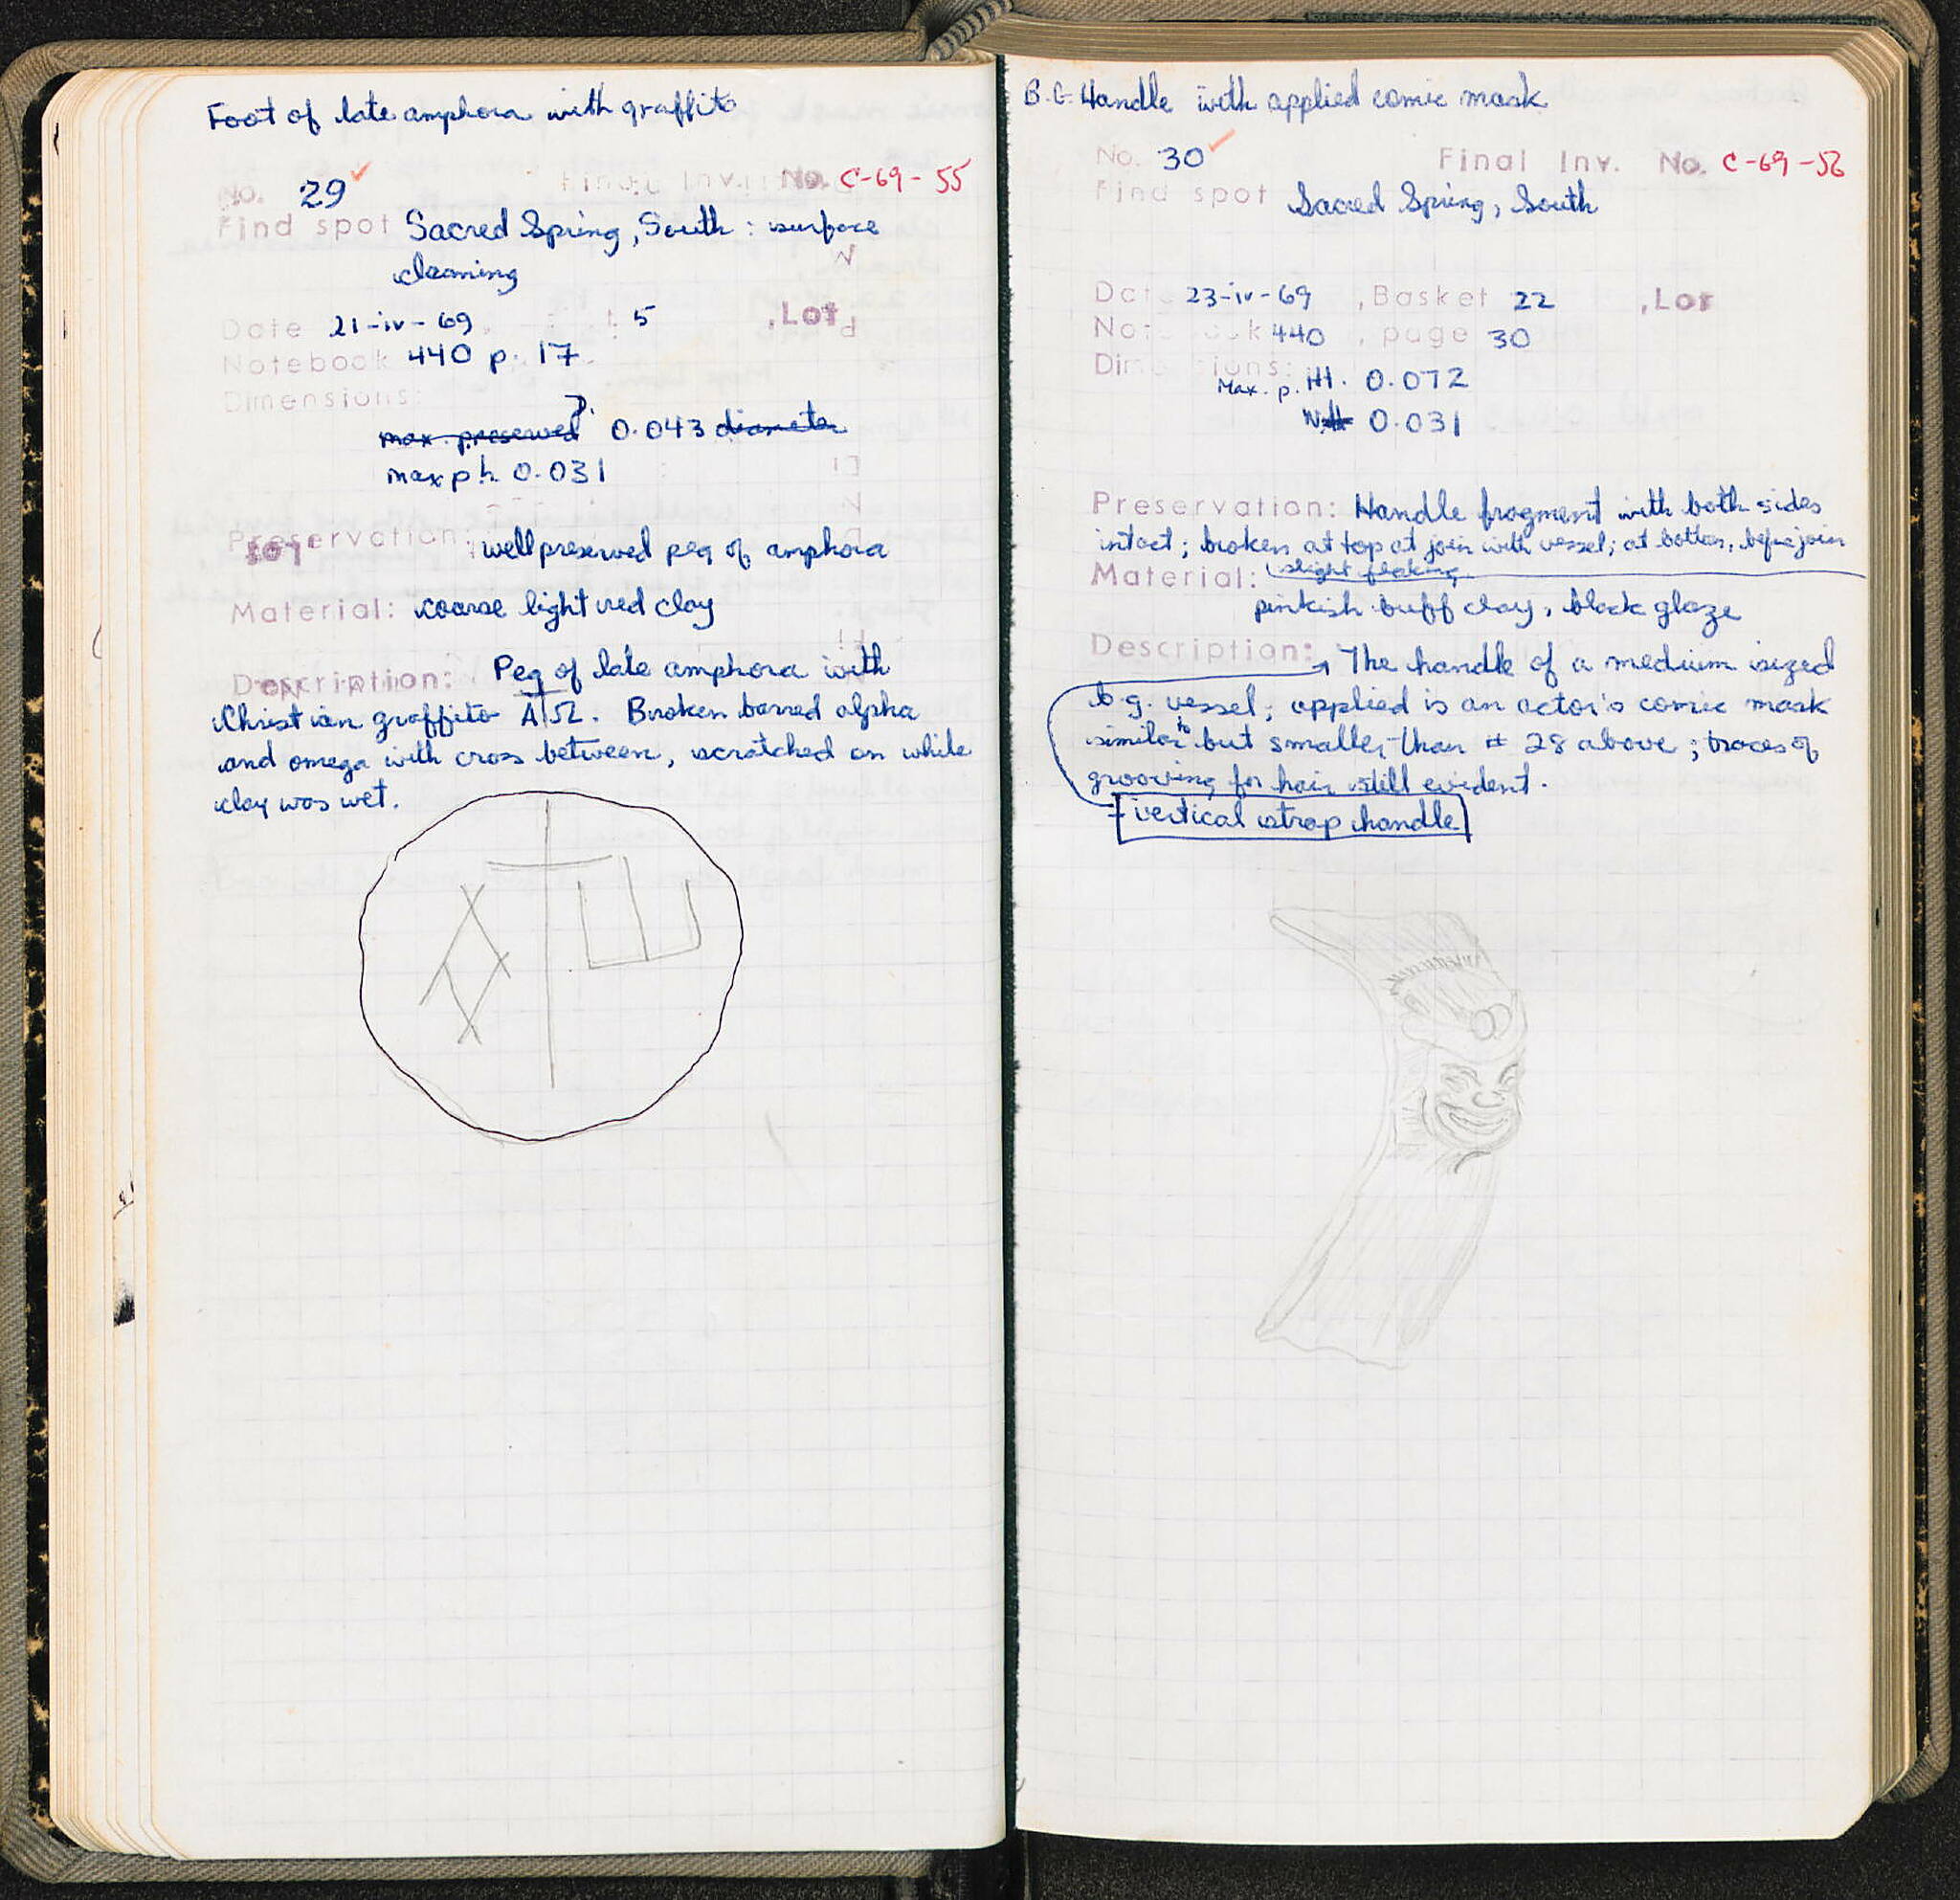 Foot of late amphora with graffito
No. 29 Final Inv. No. C-69-55
Find spot Sacred Spring, South: surface
cleaning
Date 21-iv-69 5 ,Lot
Notebook 440 p. 17
Dimensions:
max. preserved D. 0.043 diameter
max p.h. 0.031
Preservation: well preserved peg of amphora
Material: coarse light red clay
Description: Peg of late amphora with
Christian graffito A Ω. Broken barred alpha
and omega with cross between, scratched on while
clay was wet.
B.G. Handle with applied comic mask
No. 30 Final Inv. No. C-69-56
Find spot Sacred Spring, South
Date 23-iv-69 , Basket 22 , Lot
Notebook 440 , page 30
Dimensions:
Max. p. Ht. 0.072
W. 0.031
Preservation: Handle fragment with both sides
intact; broken at top at join with vessel; at bottom, before join
slight flaking
Material:
pinkish buff clay, black glaze
Description: The handle of a medium sized
b.g. vessel; applied is an actor's comic mask
similar to but smaller than # 28 above; traces of
grooving for hair still evident.
vertical strap handle